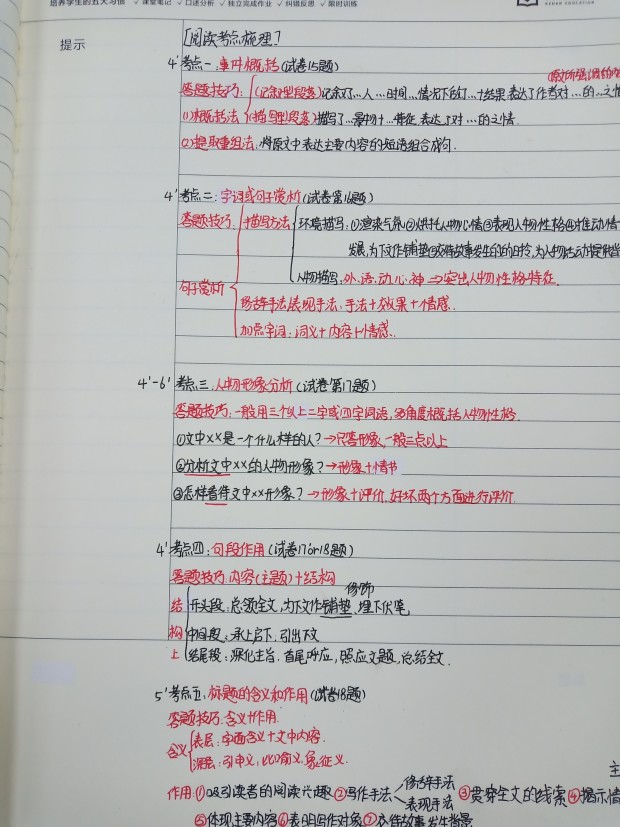 培养学生的五大习惯 ✓课堂笔记 ✓口述分析 ✓独立完成作业 ✓纠错反思 ✓限时训练
提示
[阅读考点梳理]
4' 考点一:事件概括(试卷15题)
答题技巧: (记叙型段落)记叙了…人…时间…情况下的…+结果 表达了作者对…的…之情
①概括法 (描写型段落)描写了…景物+…特征,表达了对…的之情.
②提取重组法,将原文中表达主要内容的短语组合成句.
4' 考点二:字词或句子赏析(试卷第16题)
答题技巧: 描写方法 环境描写:①渲染气氛②烘托人物心情③表现人物性格④推动情
发展,为下文作铺垫⑤交待故事发生的时间,为人物活动提供
人物描写:外、语、动、心、神 ⇒ 突出人物性格特征.
句子赏析
修辞手法/表现手法:手法+效果+情感.
加点字词:词义+内容+情感.
4'-6' 考点三:人物形象分析(试卷第17题)
答题技巧:一般用三个以上二字或四字词语,多角度概括人物性格.
①文中××是一个什么样的人?→只答形象,一般三点以上
②分析文中××的人物形象?→形象+情节
③怎样看待文中××形象?→形象+评价.好坏两个方面进行评价.
4' 考点四:句段作用(试卷17or18题)
答题技巧:内容(主题)+结构
修饰
结 开头段:总领全文,为下文作铺垫,埋下伏笔
构 中间段:承上启下,引出下文
上 结尾段:深化主旨,首尾呼应,照应文题,总结全文.
5' 考点五:标题的含义和作用(试卷18题)
答题技巧:含义+作用.
含义 表层:字面含义+文中内容.
深层:引申义,比喻义,象征义.
作用:①吸引读者的阅读兴趣②写作手法 修辞手法 表现手法 ③贯穿全文的线索④揭示情
⑤体现主要内容⑥表明写作对象⑦交待故事发生背景